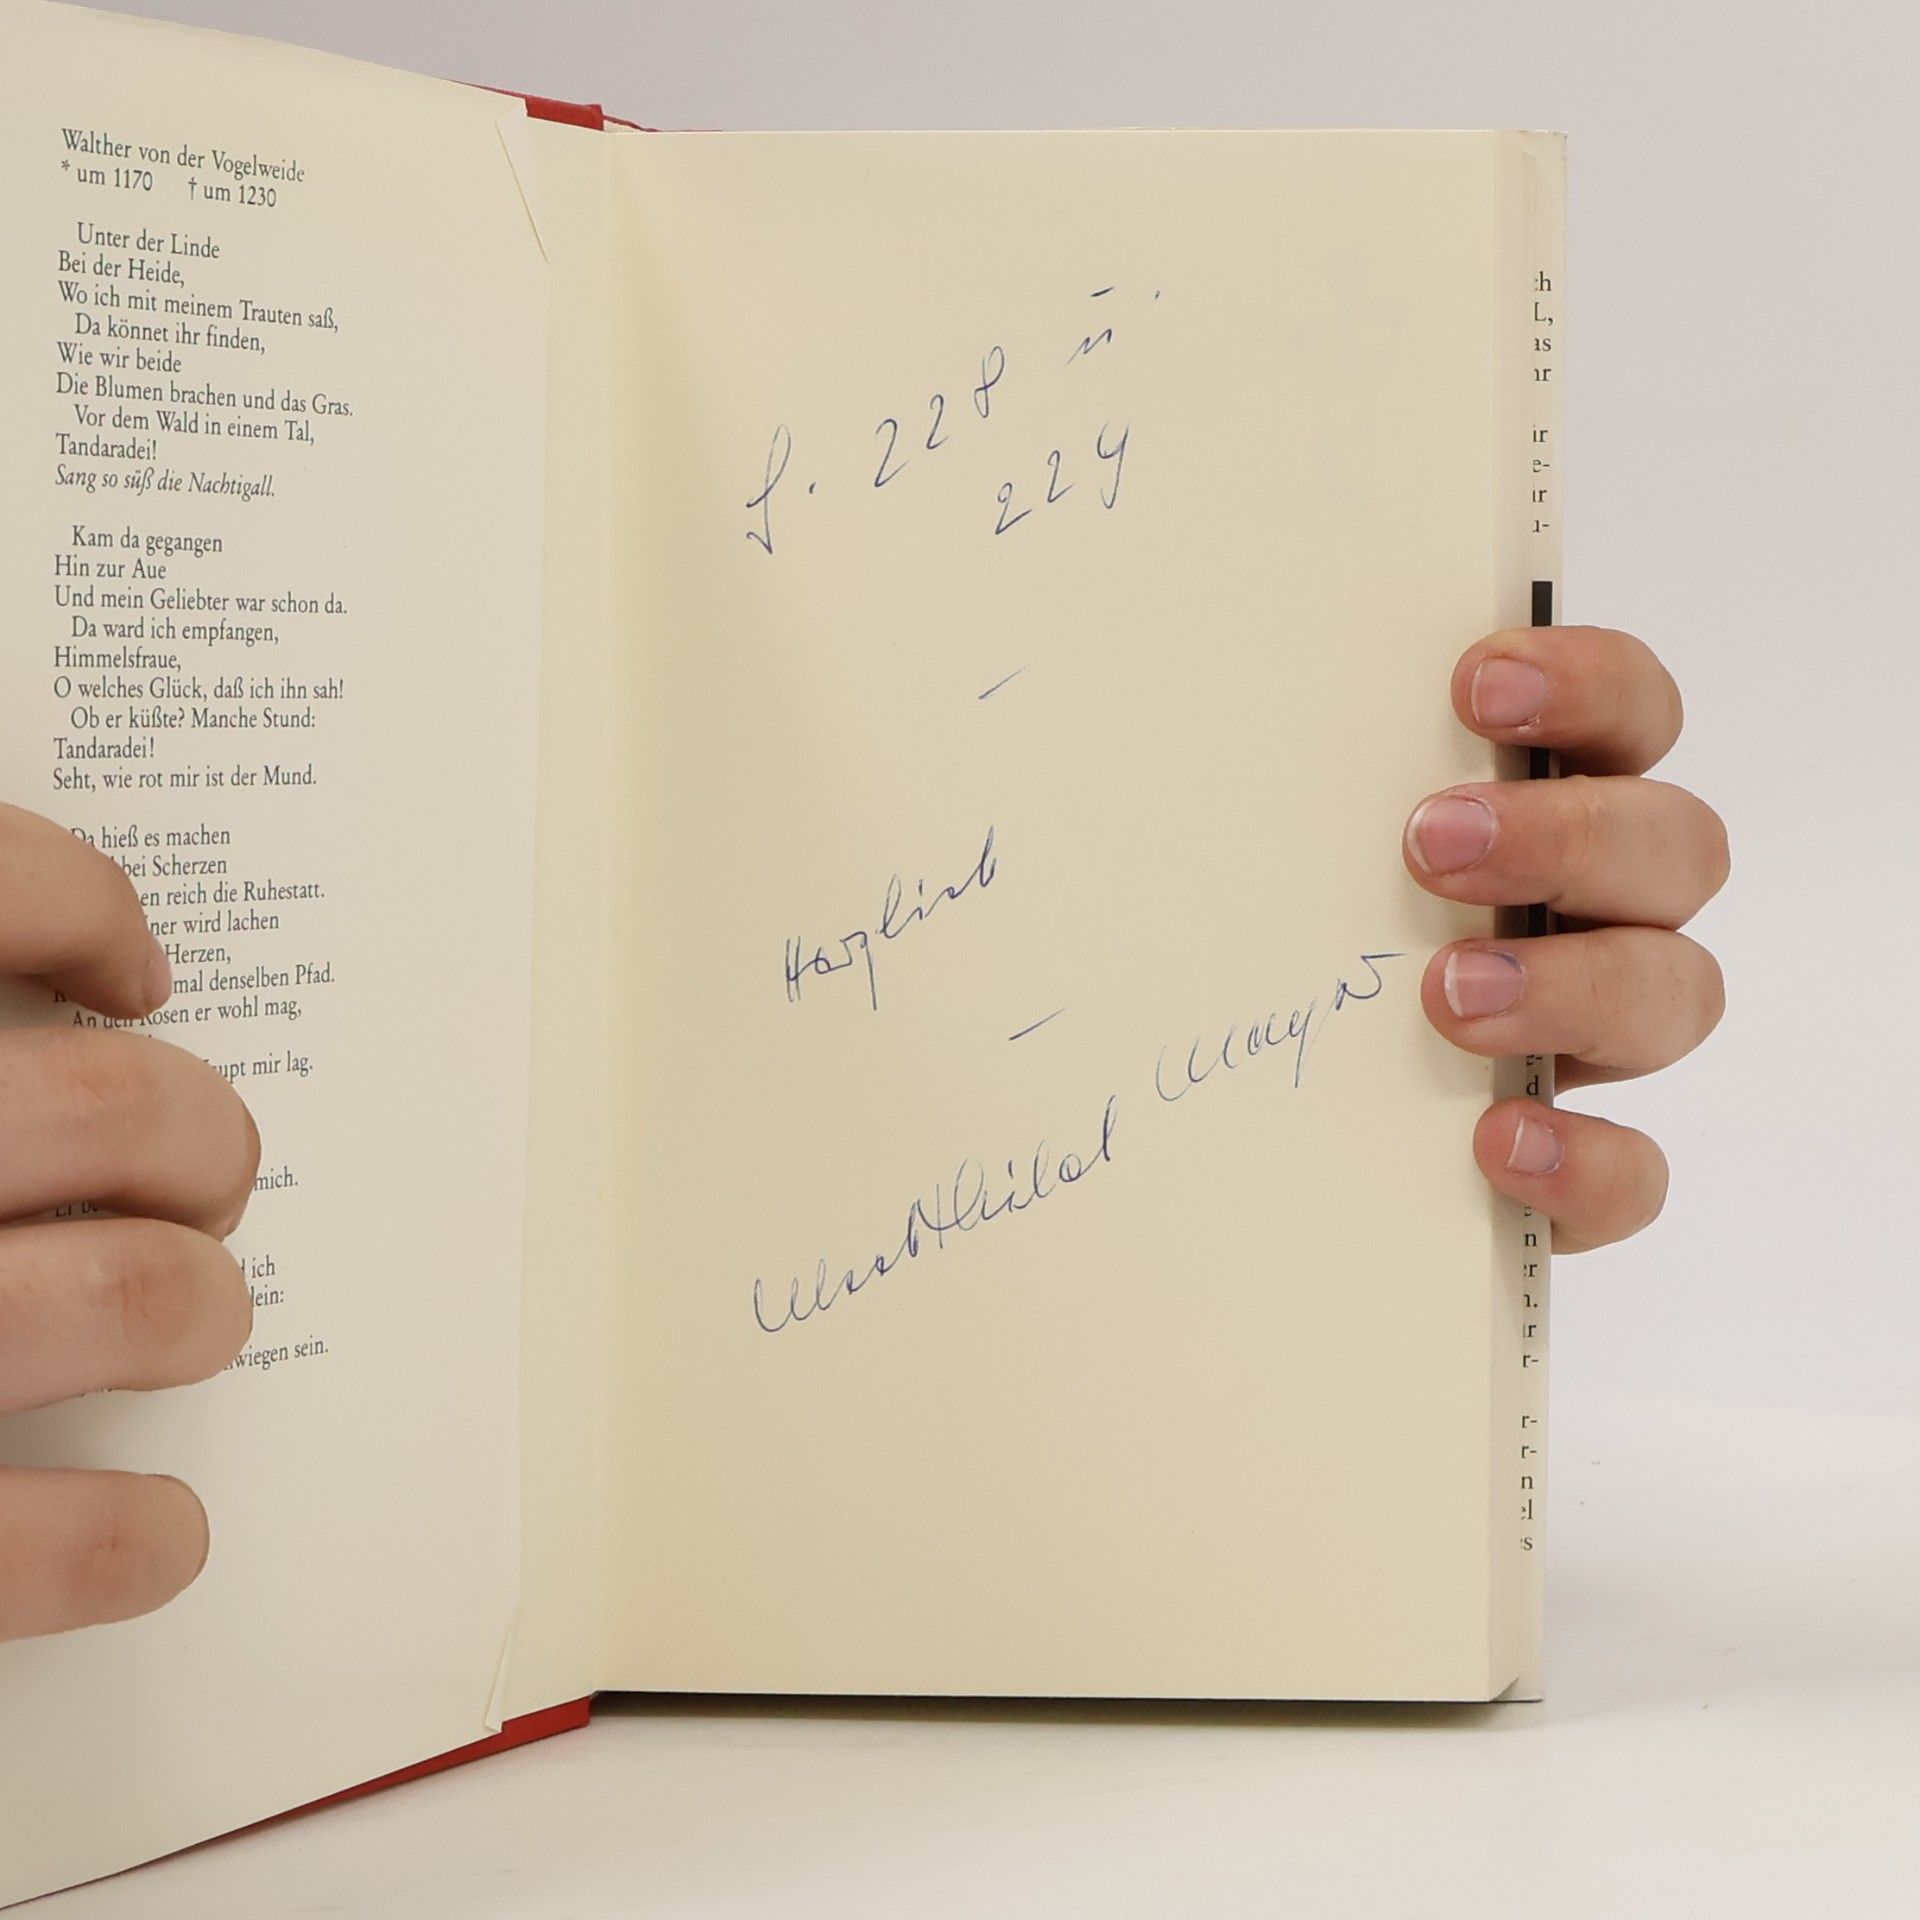 Walther von der Vogelweide
* um 1170 † um 1230
Unter der Linde
Bei der Heide,
Wo ich mit meinem Trauten saß,
Da könnet ihr finden,
Wie wir beide
Die Blumen brachen und das Gras.
Vor dem Wald in einem Tal,
Tandaradei!
Sang so süß die Nachtigall.
Kam da gegangen
Hin zur Aue
Und mein Geliebter war schon da.
Da ward ich empfangen,
Himmelsfraue,
O welches Glück, daß ich ihn sah!
Ob er küßte? Manche Stund:
Tandaradei!
Seht, wie rot mir ist der Mund.
Da hieß es machen
bei Scherzen
en reich die Ruhestatt.
ner wird lachen
Herzen,
mal denselben Pfad.
An den Rosen er wohl mag,
upt mir lag.
mich.
ich
lein:
wiegen sein.
S. 228 u.
229
–
Herzlich
–
Mayer